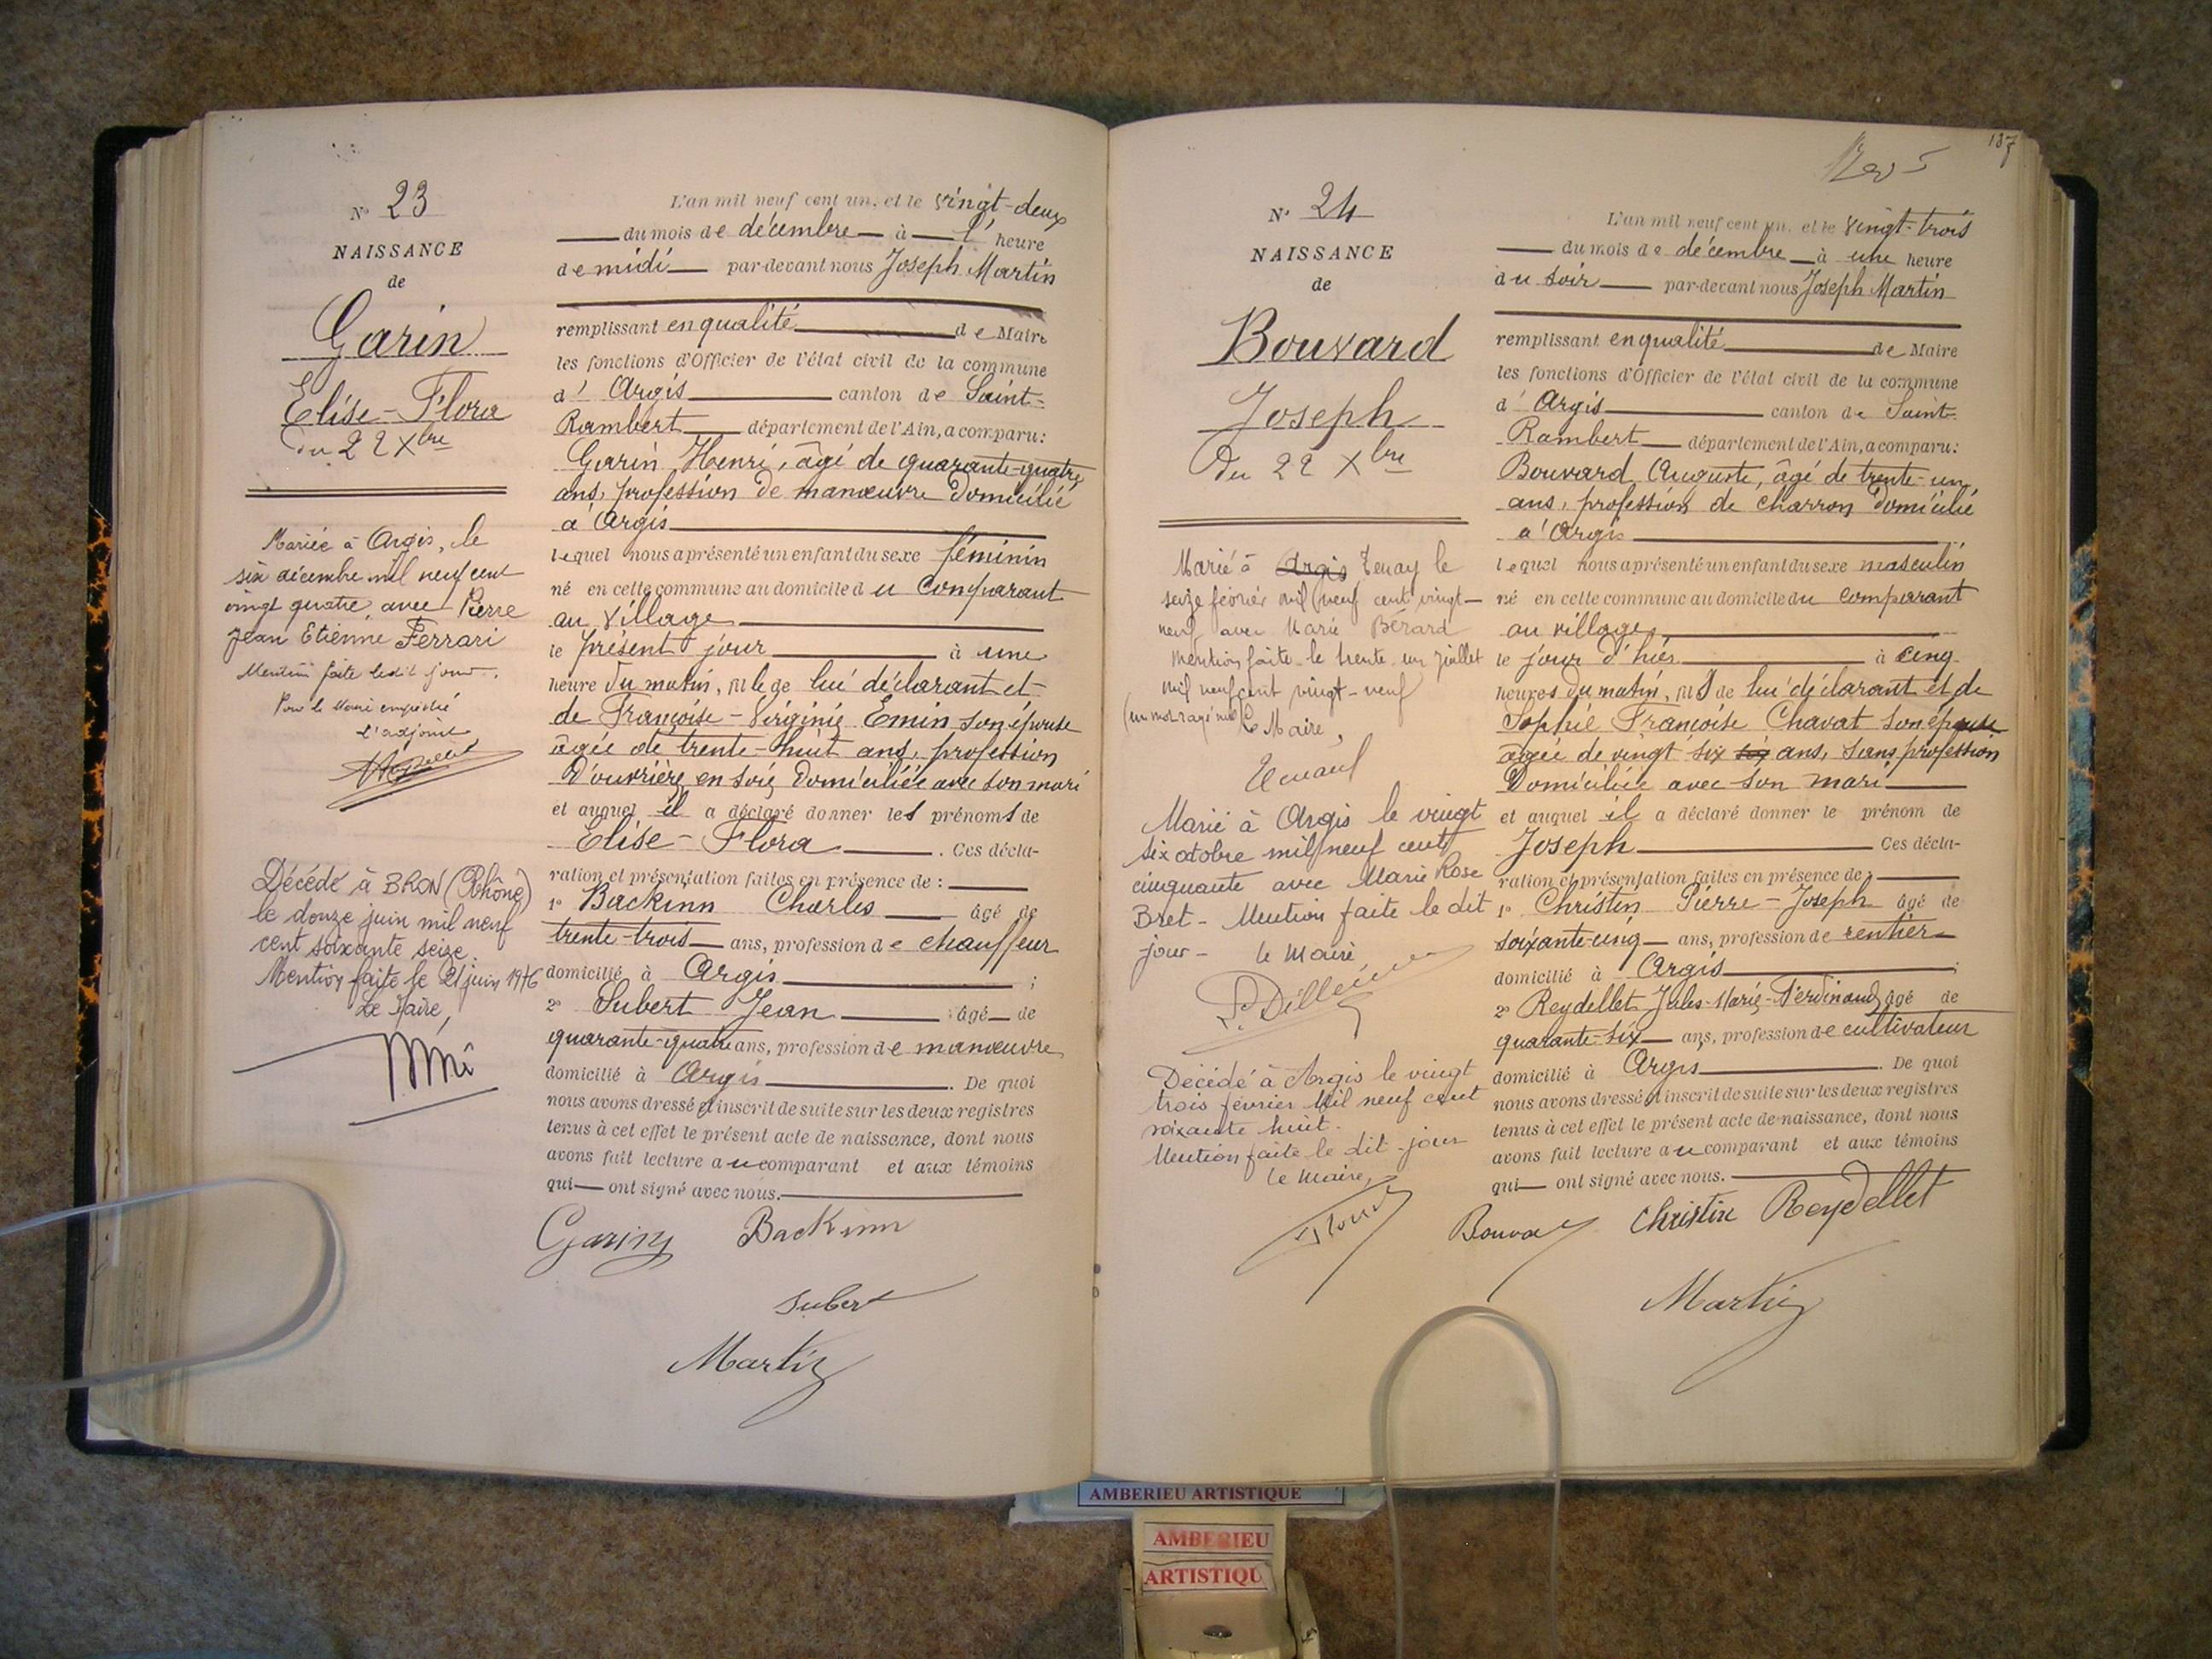 N° 23
NAISSANCE
de
Garin
Elise-Flora
du 22 Xbre
Mariée à Argis, le
six décembre mil neuf cent
vingt quatre, avec Pierre
Jean Etienne Ferrari
Mention faite ledit jour.
Pour le Maire empêché
l'adjoint
Décédé à BRON (Rhône)
le douze juin mil neuf
cent soixante seize.
Mention faite le 21 juin 1976
Le Maire,
L'an mil neuf cent un, et le vingt-deux
du mois de décembre à l' heure
de midi par-devant nous Joseph Martin
remplissant en qualité de Maire
les fonctions d'Officier de l'état civil de la commune
d' Argis canton de Saint-
Rambert département de l'Ain, a comparu:
Garin Henri, âgé de quarante-quatre
ans, profession de manœuvre domicilié
à Argis
lequel nous a présenté un enfant du sexe féminin
né en cette commune au domicile du comparant
au village
le présent jour à une
heure du matin, fille de lui déclarant et
de Françoise-Virginie Emin son épouse
âgée de trente-huit ans, profession
d'ouvrière en soie domiciliée avec son mari
et auquel il a déclaré donner les prénoms de
Elise-Flora. Ces décla-
ration et présentation faites en présence de:
1° Backinn Charles âgé de
trente-trois ans, profession de chauffeur
domicilié à Argis;
2° Subert Jean âgé de
quarante-quatre ans, profession de manœuvre
domicilié à Argis. De quoi
nous avons dressé et inscrit de suite sur les deux registres
tenus à cet effet le présent acte de naissance, dont nous
avons fait lecture au comparant et aux témoins
qui ont signé avec nous.
Garin Backinn
Subert
Martin
137
N° 24
NAISSANCE
de
Bouvard
Joseph
du 22 Xbre
Marié à Argis Tenay le
seize février mil neuf cent vingt-
neuf avec Marie Bérard
mention faite le trente un juillet
mil neuf cent vingt-neuf
(un mot rayé nul) Le Maire,
Marié à Argis le vingt
six octobre mil neuf cent
cinquante avec Marie Rose
Bret - Mention faite le dit
jour - le Maire
Décédé à Argis le vingt
trois février Mil neuf cent
soixante huit.
Mention faite le dit jour
le Maire,
L'an mil neuf cent un, et le vingt-trois
du mois de décembre à une heure
du soir par-devant nous Joseph Martin
remplissant en qualité de Maire
les fonctions d'Officier de l'état civil de la commune
d' Argis canton de Saint-
Rambert département de l'Ain, a comparu:
Bouvard Auguste, âgé de trente-un
ans, profession de charron domicilié
à Argis
lequel nous a présenté un enfant du sexe masculin
né en cette commune au domicile du comparant
au village
le jour d'hier à cinq
heures du matin, fils de lui déclarant et de
Sophie Françoise Chavat son épouse
âgée de vingt six six ans, sans profession
domiciliée avec son mari
et auquel il a déclaré donner le prénom de
Joseph Ces décla-
ration et présentation faites en présence de:
1° Christin Pierre-Joseph âgé de
soixante-cinq ans, profession de rentier
domicilié à Argis;
2° Reydellet Jules-Marie-Ferdinand âgé de
quarante-six ans, profession de cultivateur
domicilié à Argis. De quoi
nous avons dressé et inscrit de suite sur les deux registres
tenus à cet effet le présent acte de naissance, dont nous
avons fait lecture au comparant et aux témoins
qui ont signé avec nous.
Bouvard Christin Reydellet
Martin
AMBERIEU ARTISTIQUE
AMBERIEU
ARTISTIQU